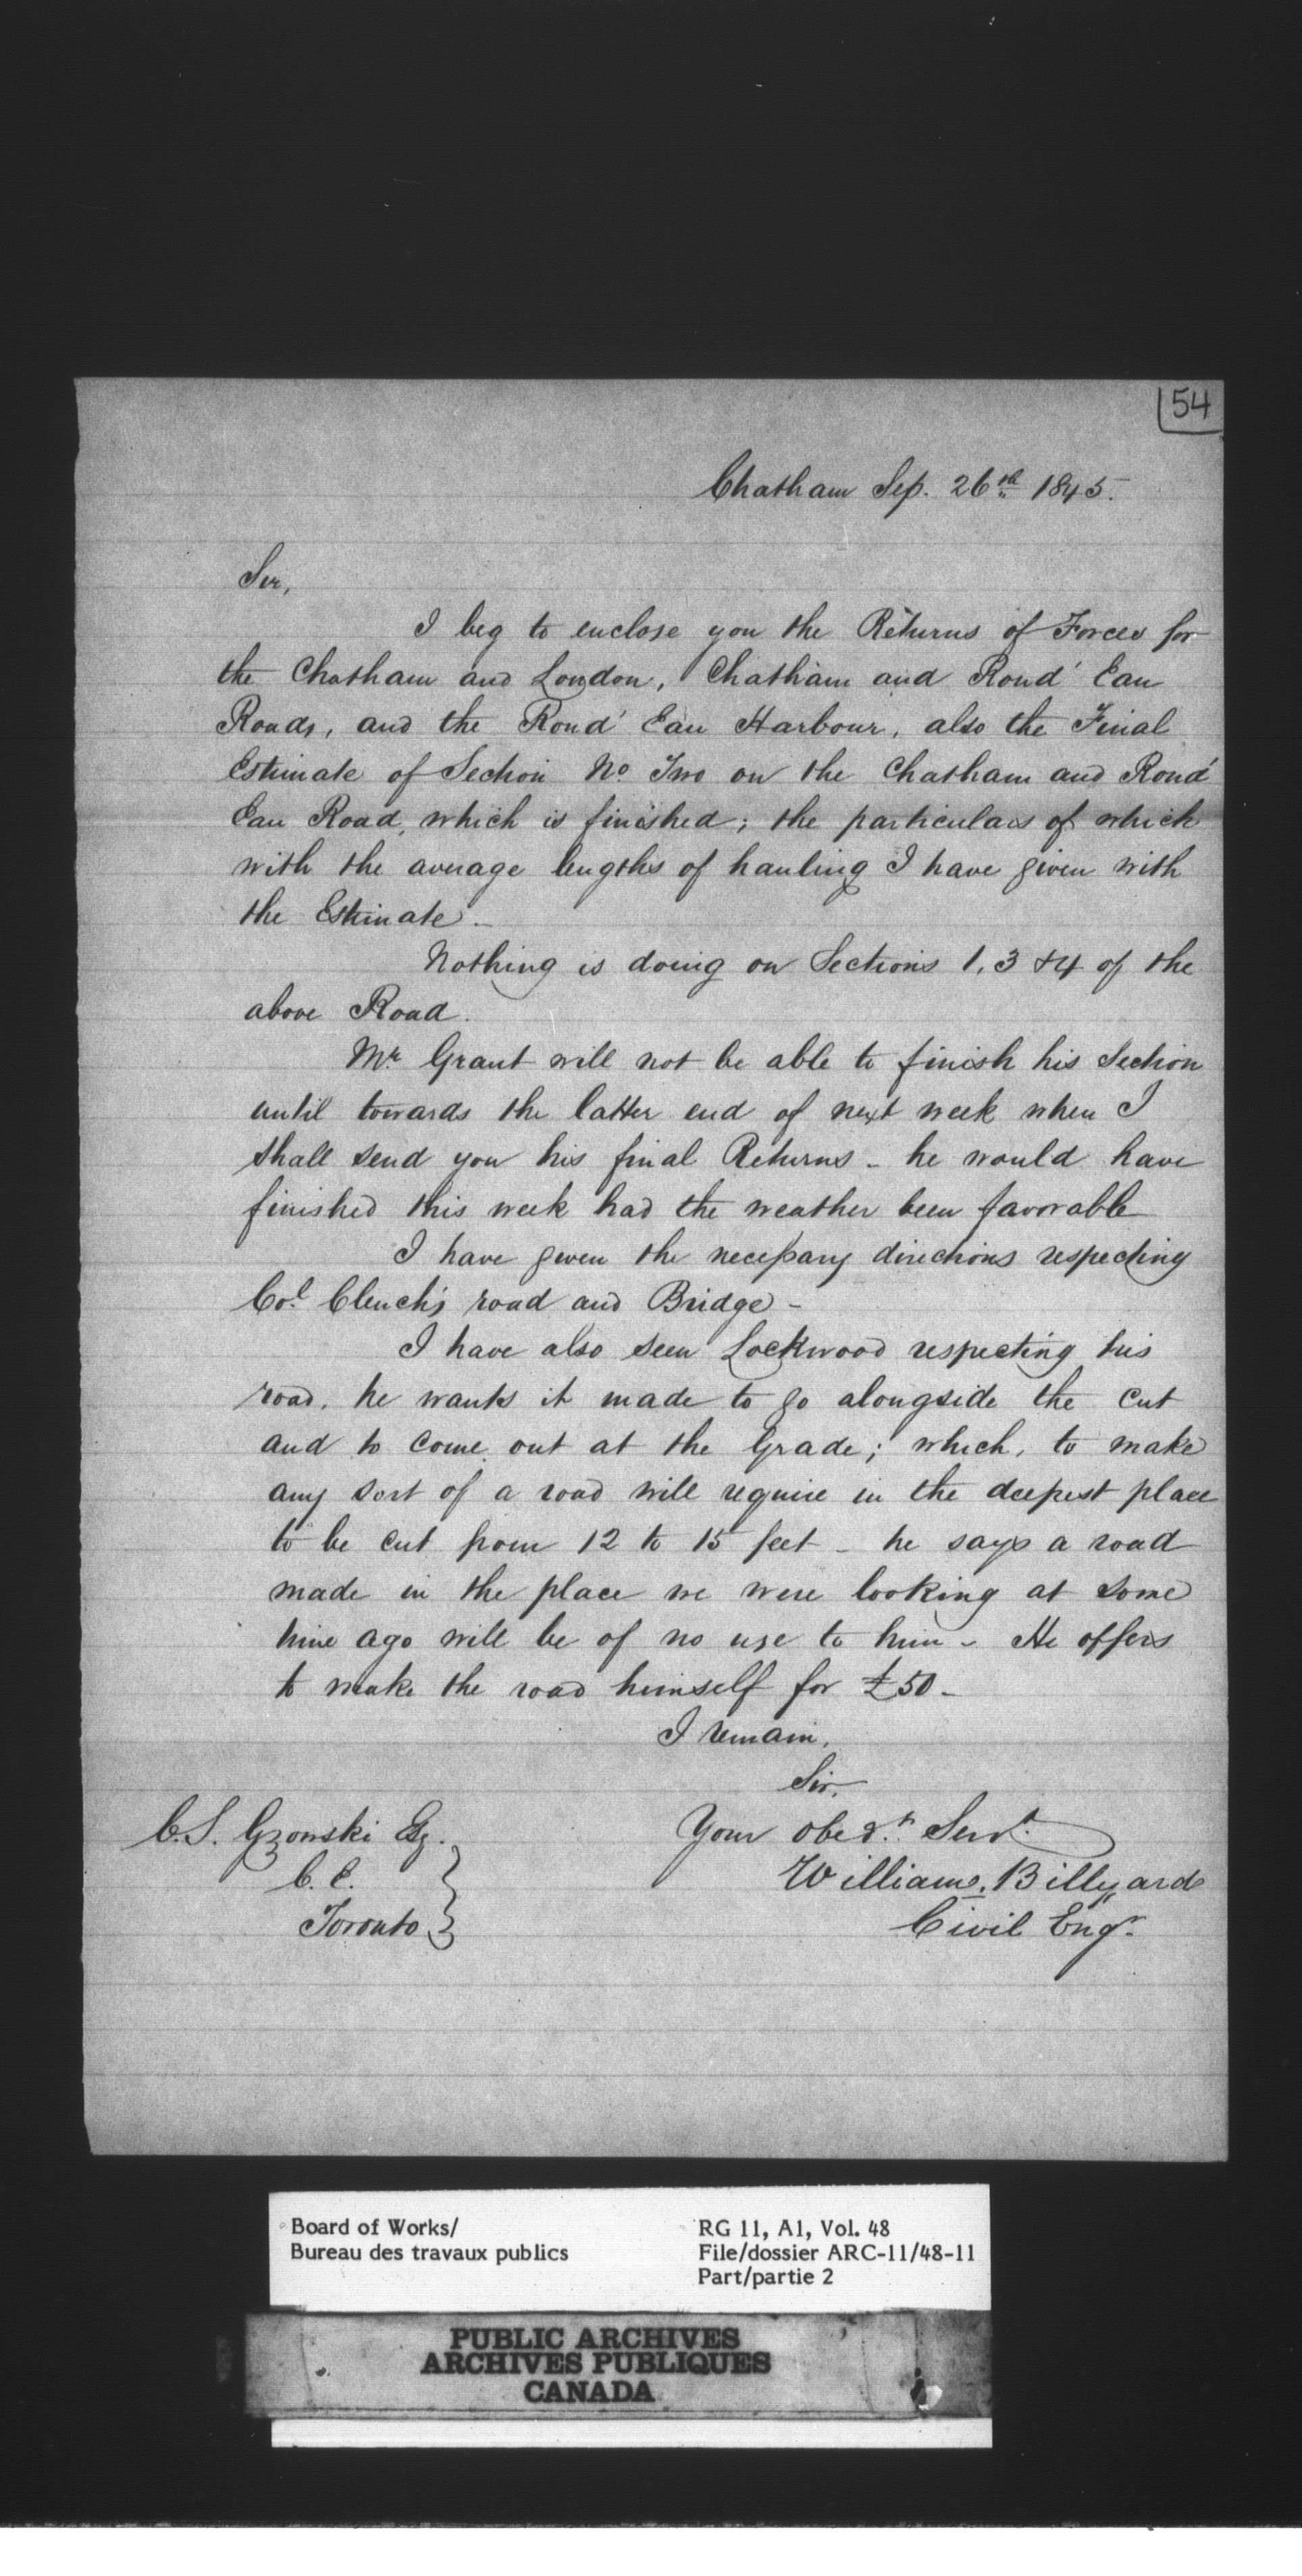 54
Chatham Sep. 26th 1845.
Sir,
I beg to enclose you the Returns of Forces for
the Chatham and London, Chatham and Rond' Eau
Roads, and the Rond' Eau Harbour, also the Final
Estimate of Section No Two on the Chatham and Rond'
Eau Road, which is finished; the particulars of which
with the average lengths of hauling I have given with
the Estimate -
Nothing is doing on Sections 1, 3 & 4 of the
above Road.
Mr. Grant will not be able to finish his Section
until towards the latter end of next week when I
shall send you his final Returns - he would have
finished this week had the weather been favorable
I have given the necessary directions respecting
Col. Clench's road and Bridge -
I have also seen Lockwood respecting his
road, he wants it made to go alongside the cut
and to come out at the Grade; which, to make
any sort of a road will require in the deepest place
to be cut from 12 to 15 feet - he says a road
made in the place we were looking at some
time ago will be of no use to him - He offers
to make the road himself for £50 -
I remain,
Sir,
Your obedt. Servt.
William Billyard
Civil Engr.
C. S. Gzowski Esq.
C. E.
Toronto
Board of Works/
Bureau des travaux publics
RG 11, A1, Vol. 48
File/dossier ARC-11/48-11
Part/partie 2
PUBLIC ARCHIVES
ARCHIVES PUBLIQUES
CANADA